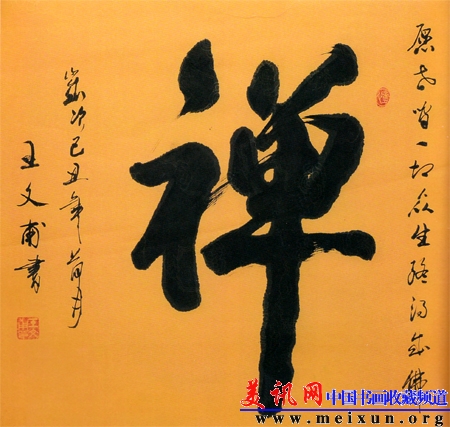 愿世间一切众生终得成佛
禅
歲次己丑年荷月
王文甫書
美讯网 中国书画收藏频道
www.meixun.org